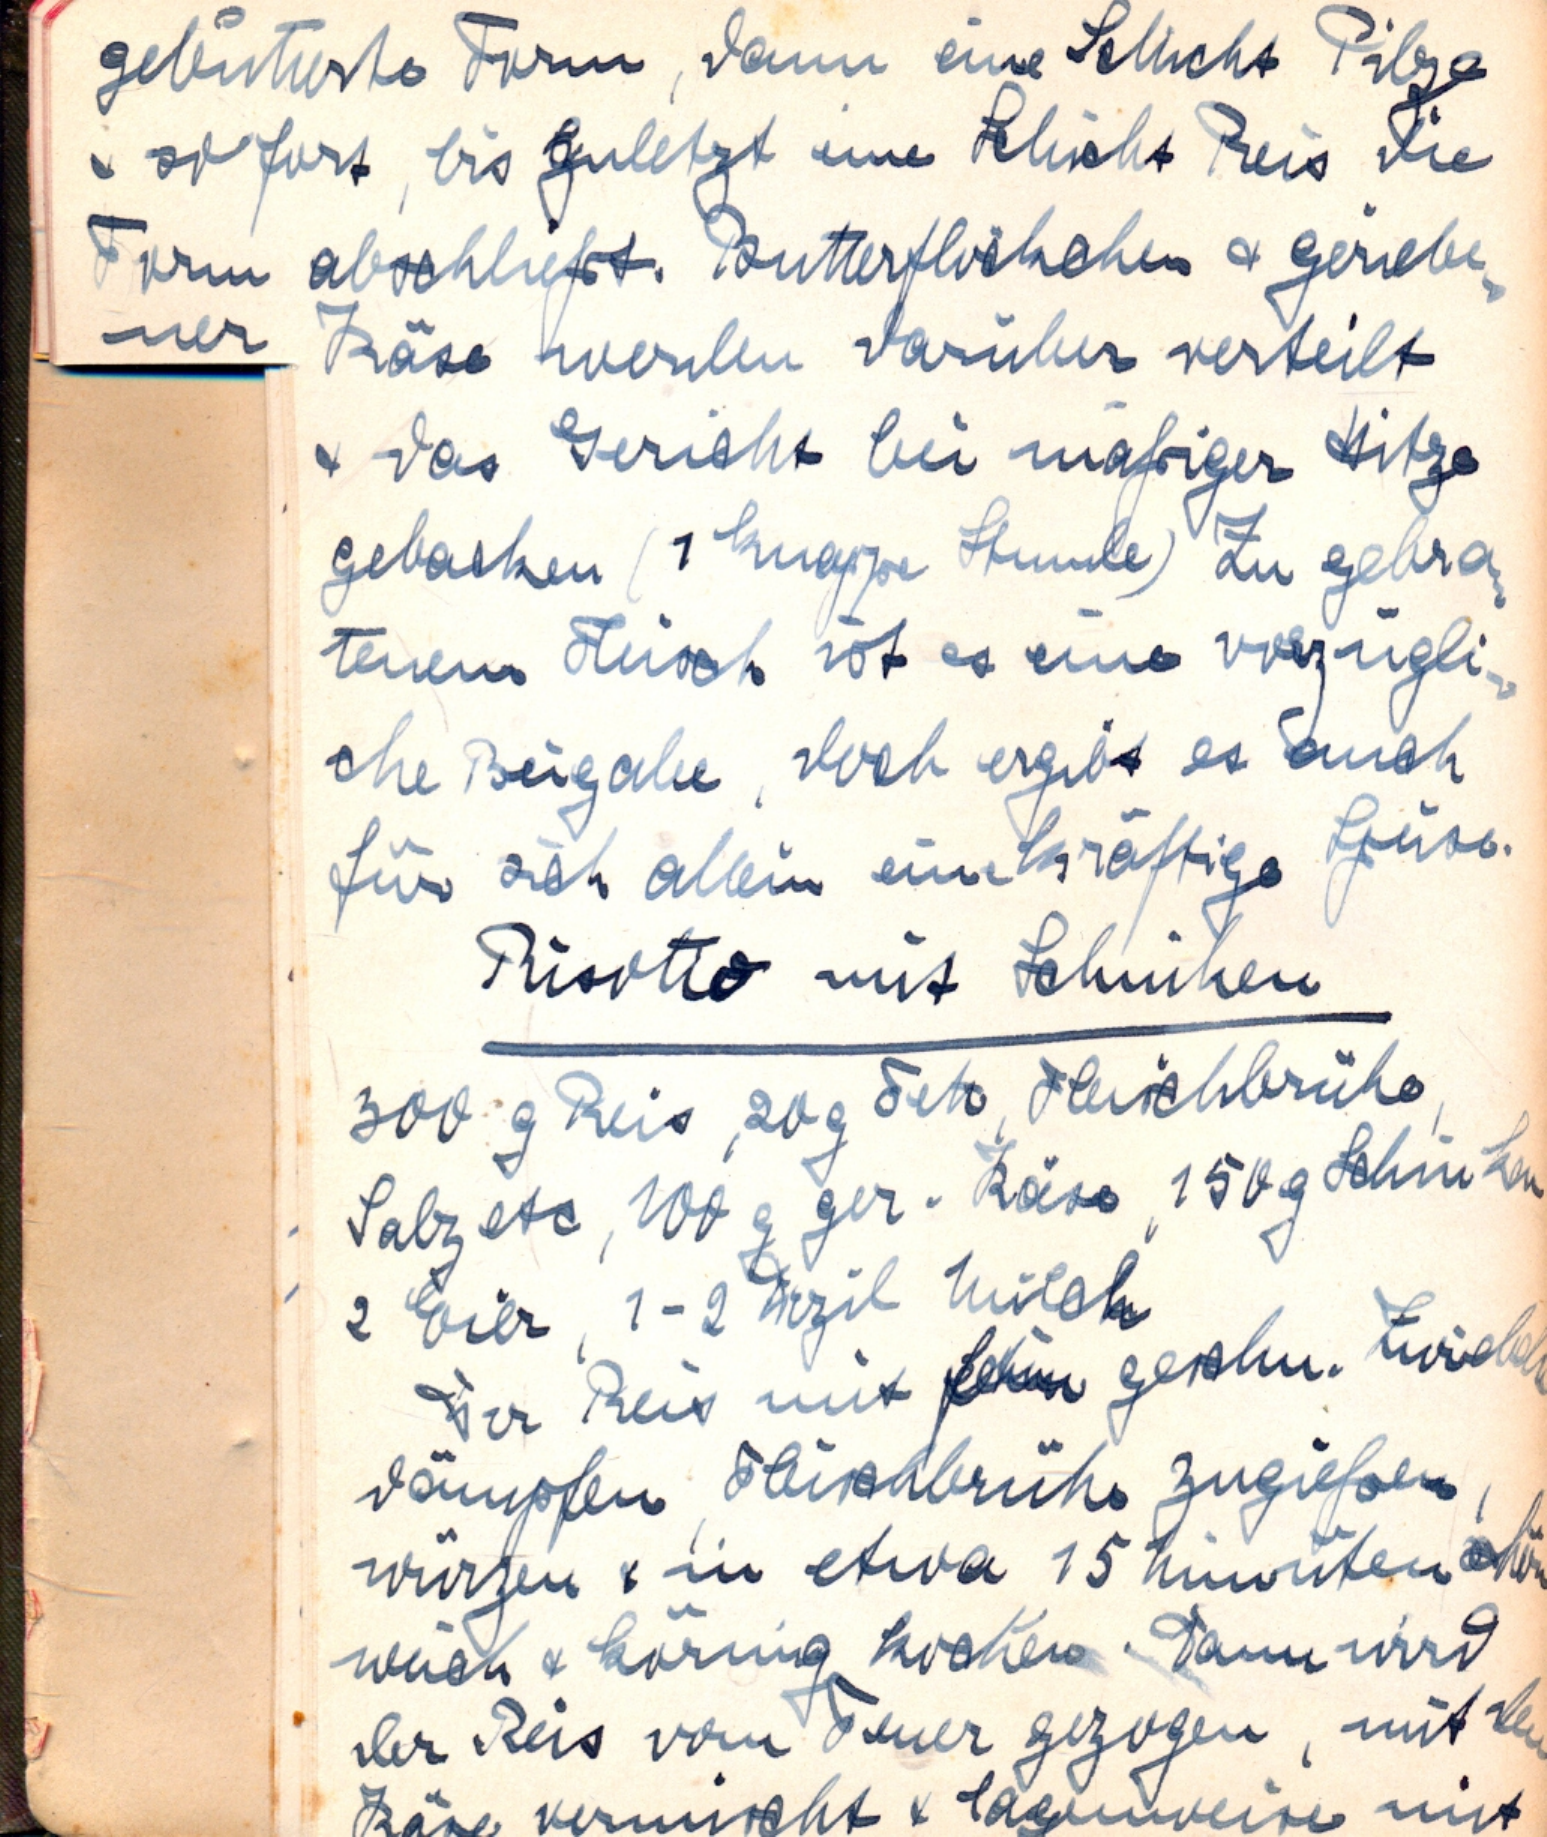 gebutterte Form, dann eine Schicht Pilze
& so fort, bis zuletzt eine Schicht Reis die
Form abschließt. Butterflöckchen & geriebe-
ner Käse werden darüber verteilt
& das Gericht bei mäßiger Hitze
gebacken (1 knappe Stunde) Zu gebra-
tenem Fleisch ist es eine vorzügli-
che Beigabe, doch ergibt es auch
für sich allein eine kräftige Speise.
Risotto mit Schinken
300 g Reis, 20 g Fett, Fleischbrühe,
Salz etc, 100 g ger. Käse, 150 g Schinken
2 Eier, 1-2 Dezil Milch
Der Reis mit fein geschn. Zwiebeln
dämpfen, Fleischbrühe zugießen,
würzen & in etwa 15 Minuten schön
weich & körnig kochen. Dann wird
der Reis vom Feuer gezogen, mit dem
Käse vermischt & lagenweise mit